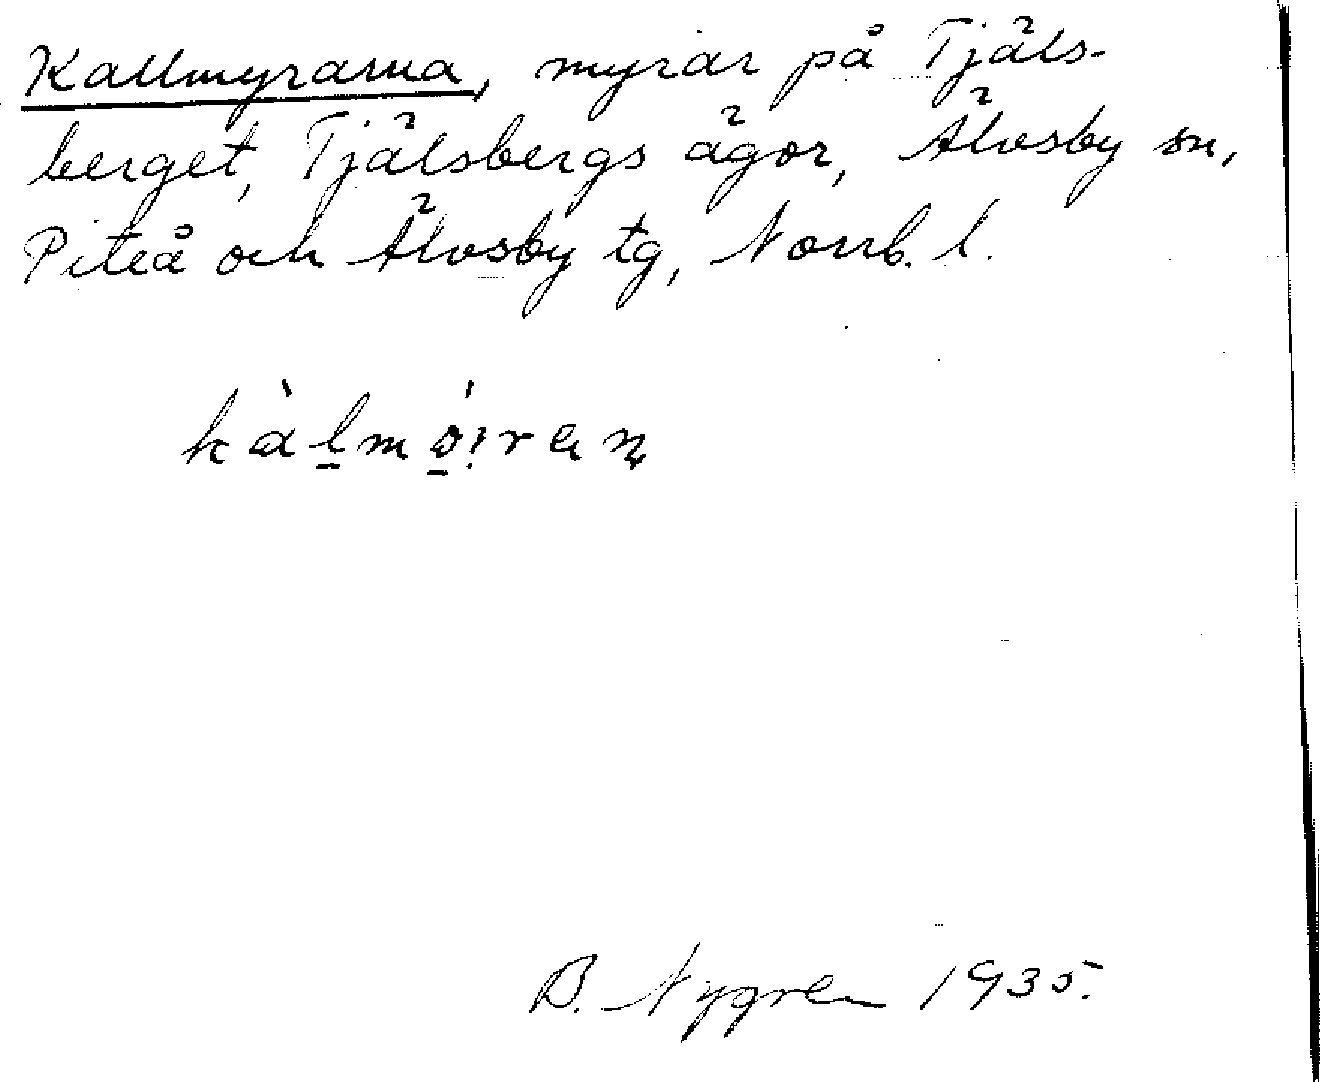 Kallmyrarna, myrar på Tjäls-
berget, Tjälsbergs ägor, Älvsby sn,
Piteå och Älvsby tg, Norrb. l.
B. Nygren 1935.